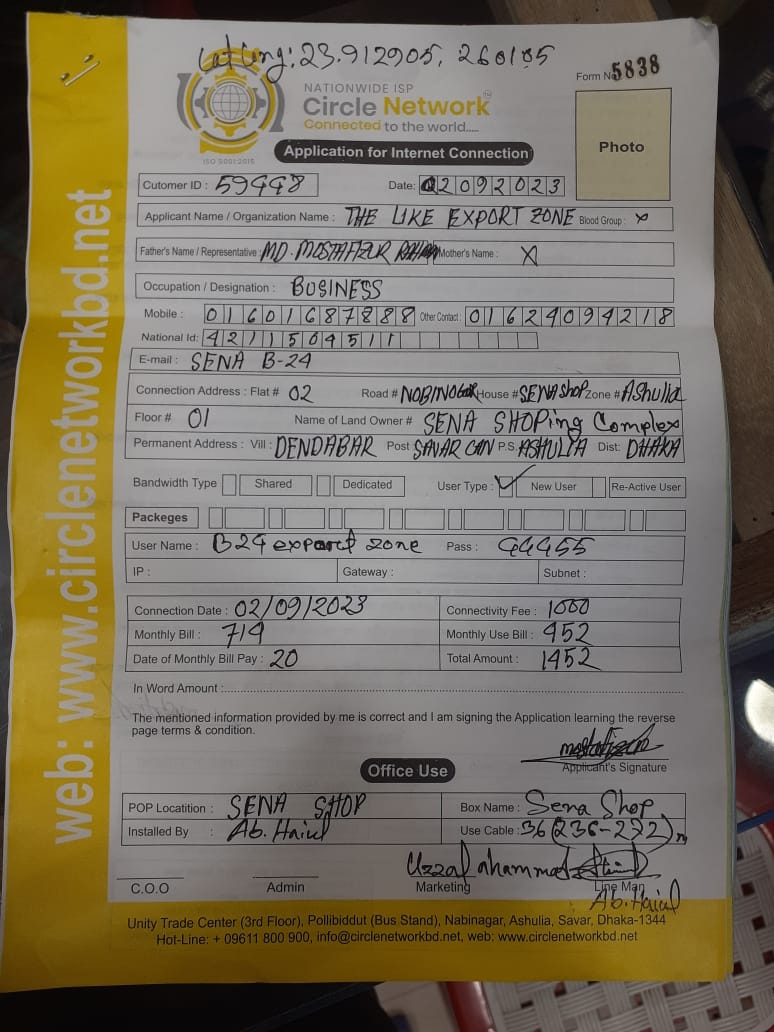 Lat Long: 23.912905, 260185
Form No 5838
NATIONWIDE ISP
Circle Network
Connected to the world.....
ISO 9001:2015
Photo
Application for Internet Connection
Cutomer ID : 59448 Date: 02092023
Applicant Name / Organization Name : THE LIKE EXPORT ZONE Blood Group : x
Father's Name / Representative : MD. MOSTAFIZUR Mother's Name : X
Occupation / Designation : BUSINESS
Mobile : 01601687888 Other Contact : 01624094218
National Id: 4211504511
E-mail : SENA B-24
Connection Address : Flat # 02 Road # NOBINOGOR House # SENA Shop Zone # Ashulia
Floor # 01 Name of Land Owner # SENA SHOPing Complex
Permanent Address : Vill : DENDABAR Post SAVAR CAN P.S. ASHULIA Dist: DHAKA
Bandwidth Type Shared Dedicated User Type : ✓ New User Re-Active User
Packeges
User Name : B24 exporct zone Pass : 44455
IP : Gateway : Subnet :
Connection Date : 02/09/2023 Connectivity Fee : 1000
Monthly Bill : 714 Monthly Use Bill : 452
Date of Monthly Bill Pay : 20 Total Amount : 1452
In Word Amount :
The mentioned information provided by me is correct and I am signing the Application learning the reverse
page terms & condition.
Applicant's Signature
Office Use
POP Locatition : SENA SHOP Box Name : Sena Shop
Installed By : Ab. Haiul Use Cable : 36 (236-272) m
Uzzal ahammad
C.O.O Admin Marketing Line Man
Ab. Haiul
Unity Trade Center (3rd Floor), Pollibiddut (Bus Stand), Nabinagar, Ashulia, Savar, Dhaka-1344
Hot-Line: + 09611 800 900, info@circlenetworkbd.net, web: www.circlenetworkbd.net
web: www.circlenetworkbd.net